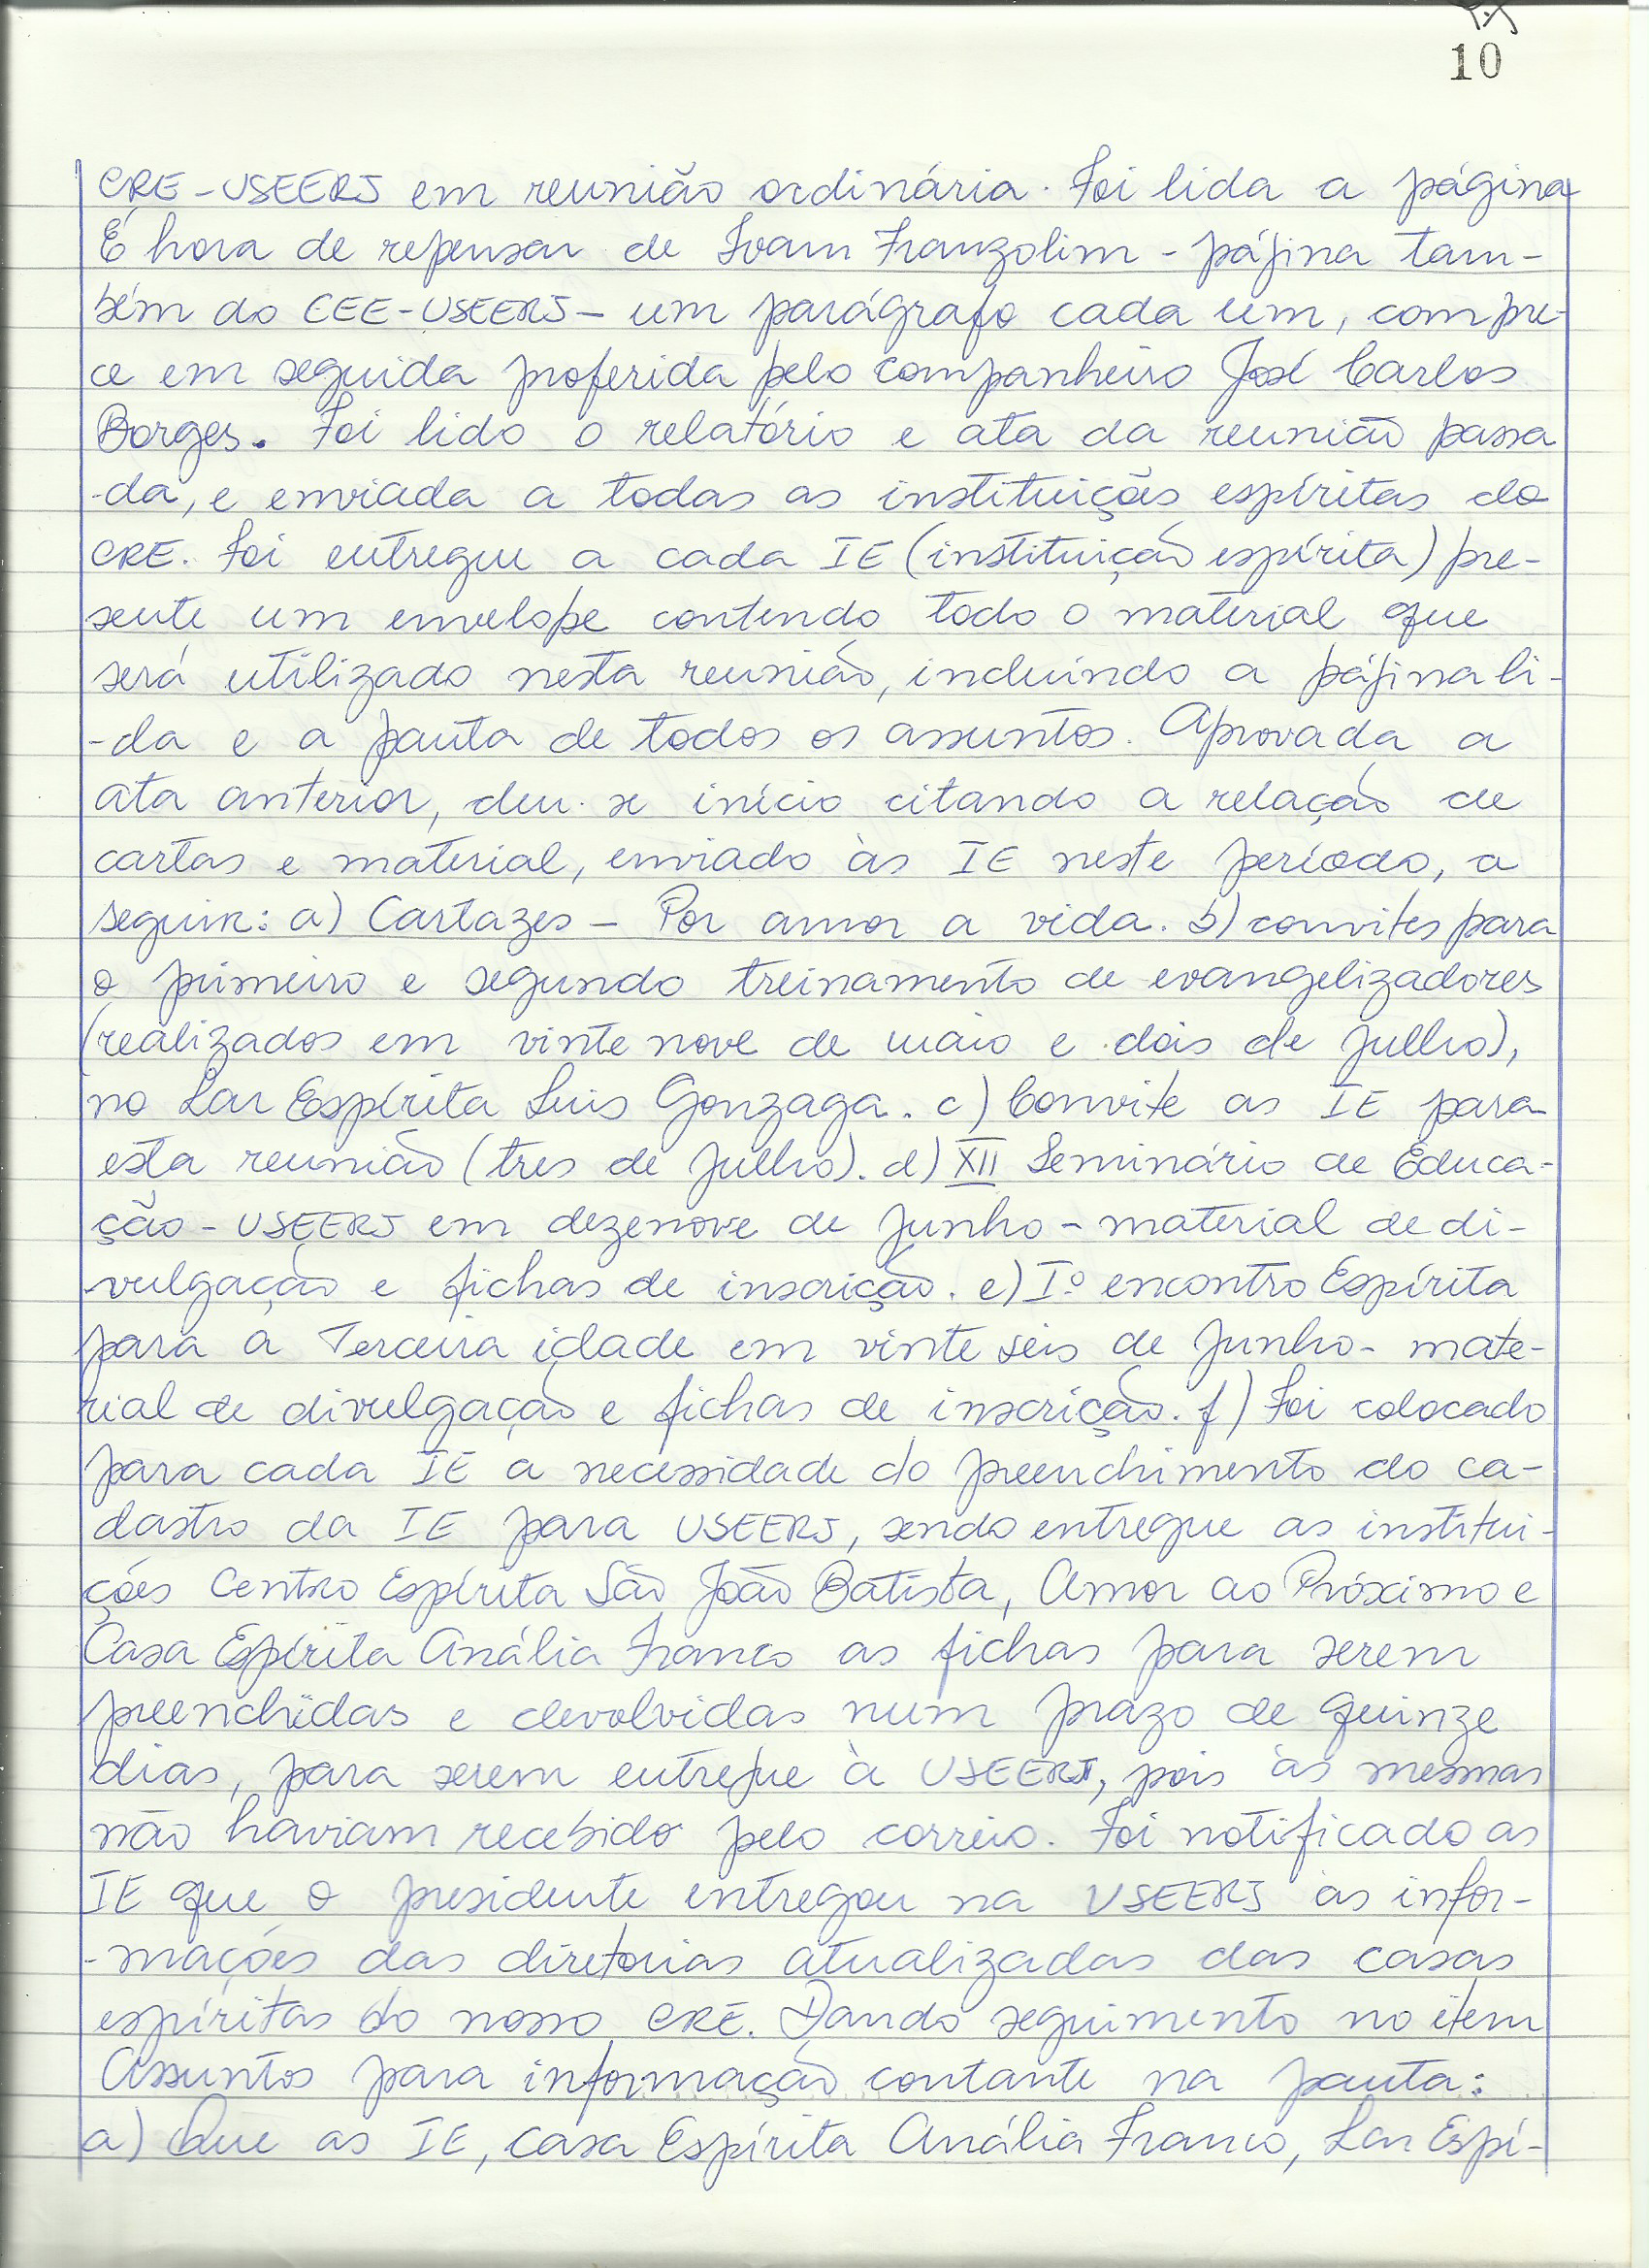 10
CRE-USEERJ em reunião ordinária. Foi lida a página
É hora de repensar de Ivam Franzolim - página tam-
bém do CEE-USEERJ - um parágrafo cada um, compre-
ce em seguida proferida pelo companheiro José Carlos
Borges. Foi lido o relatório e ata da reunião passa
-da, e enviada a todas as instituições espíritas do
CRE. Foi entregue a cada IE (instituição espírita) pre-
sente um envelope contendo todo o material que
será utilizado nesta reunião, incluíndo a página li-
-da e a pauta de todos os assuntos. Aprovada a
ata anterior, deu-se início citando a relação de
cartas e material, enviado às IE neste período, a
seguir: a) Cartazes - Por amor a vida. b) convites para
o primeiro e segundo treinamento de evangelizadores
(realizados em vinte nove de maio e dois de Julho),
no Lar Espírita Luis Gonzaga. c) Convite as IE para
esta reunião (tres de Julho). d) XII Seminário de Educa-
ção - USEERJ em dezenove de Junho - material de di-
vulgação e fichas de inscrição. e) Iº encontro Espírita
para a Terceira idade em vinte seis de Junho - mate-
rial de divulgação e fichas de inscrição. f) Foi colocado
para cada IE a necessidade do preenchimento do ca-
dastro da IE para USEERJ, sendo entregue as institui-
ções Centro Espírita São João Batista, Amor ao Próximo e
Casa Espírita Anália Franco as fichas para serem
preenchidas e devolvidas num prazo de quinze
dias, para serem entregue à USEERJ, pois as mesmas
não haviam recebido pelo correio. Foi notificado as
IE que o presidente entregou na USEERJ as infor-
-mações das diretorias atualizadas das casas
espíritas do nosso CRE. Dando seguimento no item
Assuntos para informação contante na pauta:
a) Que as IE, Casa Espírita Anália Franco, Lar Espí-